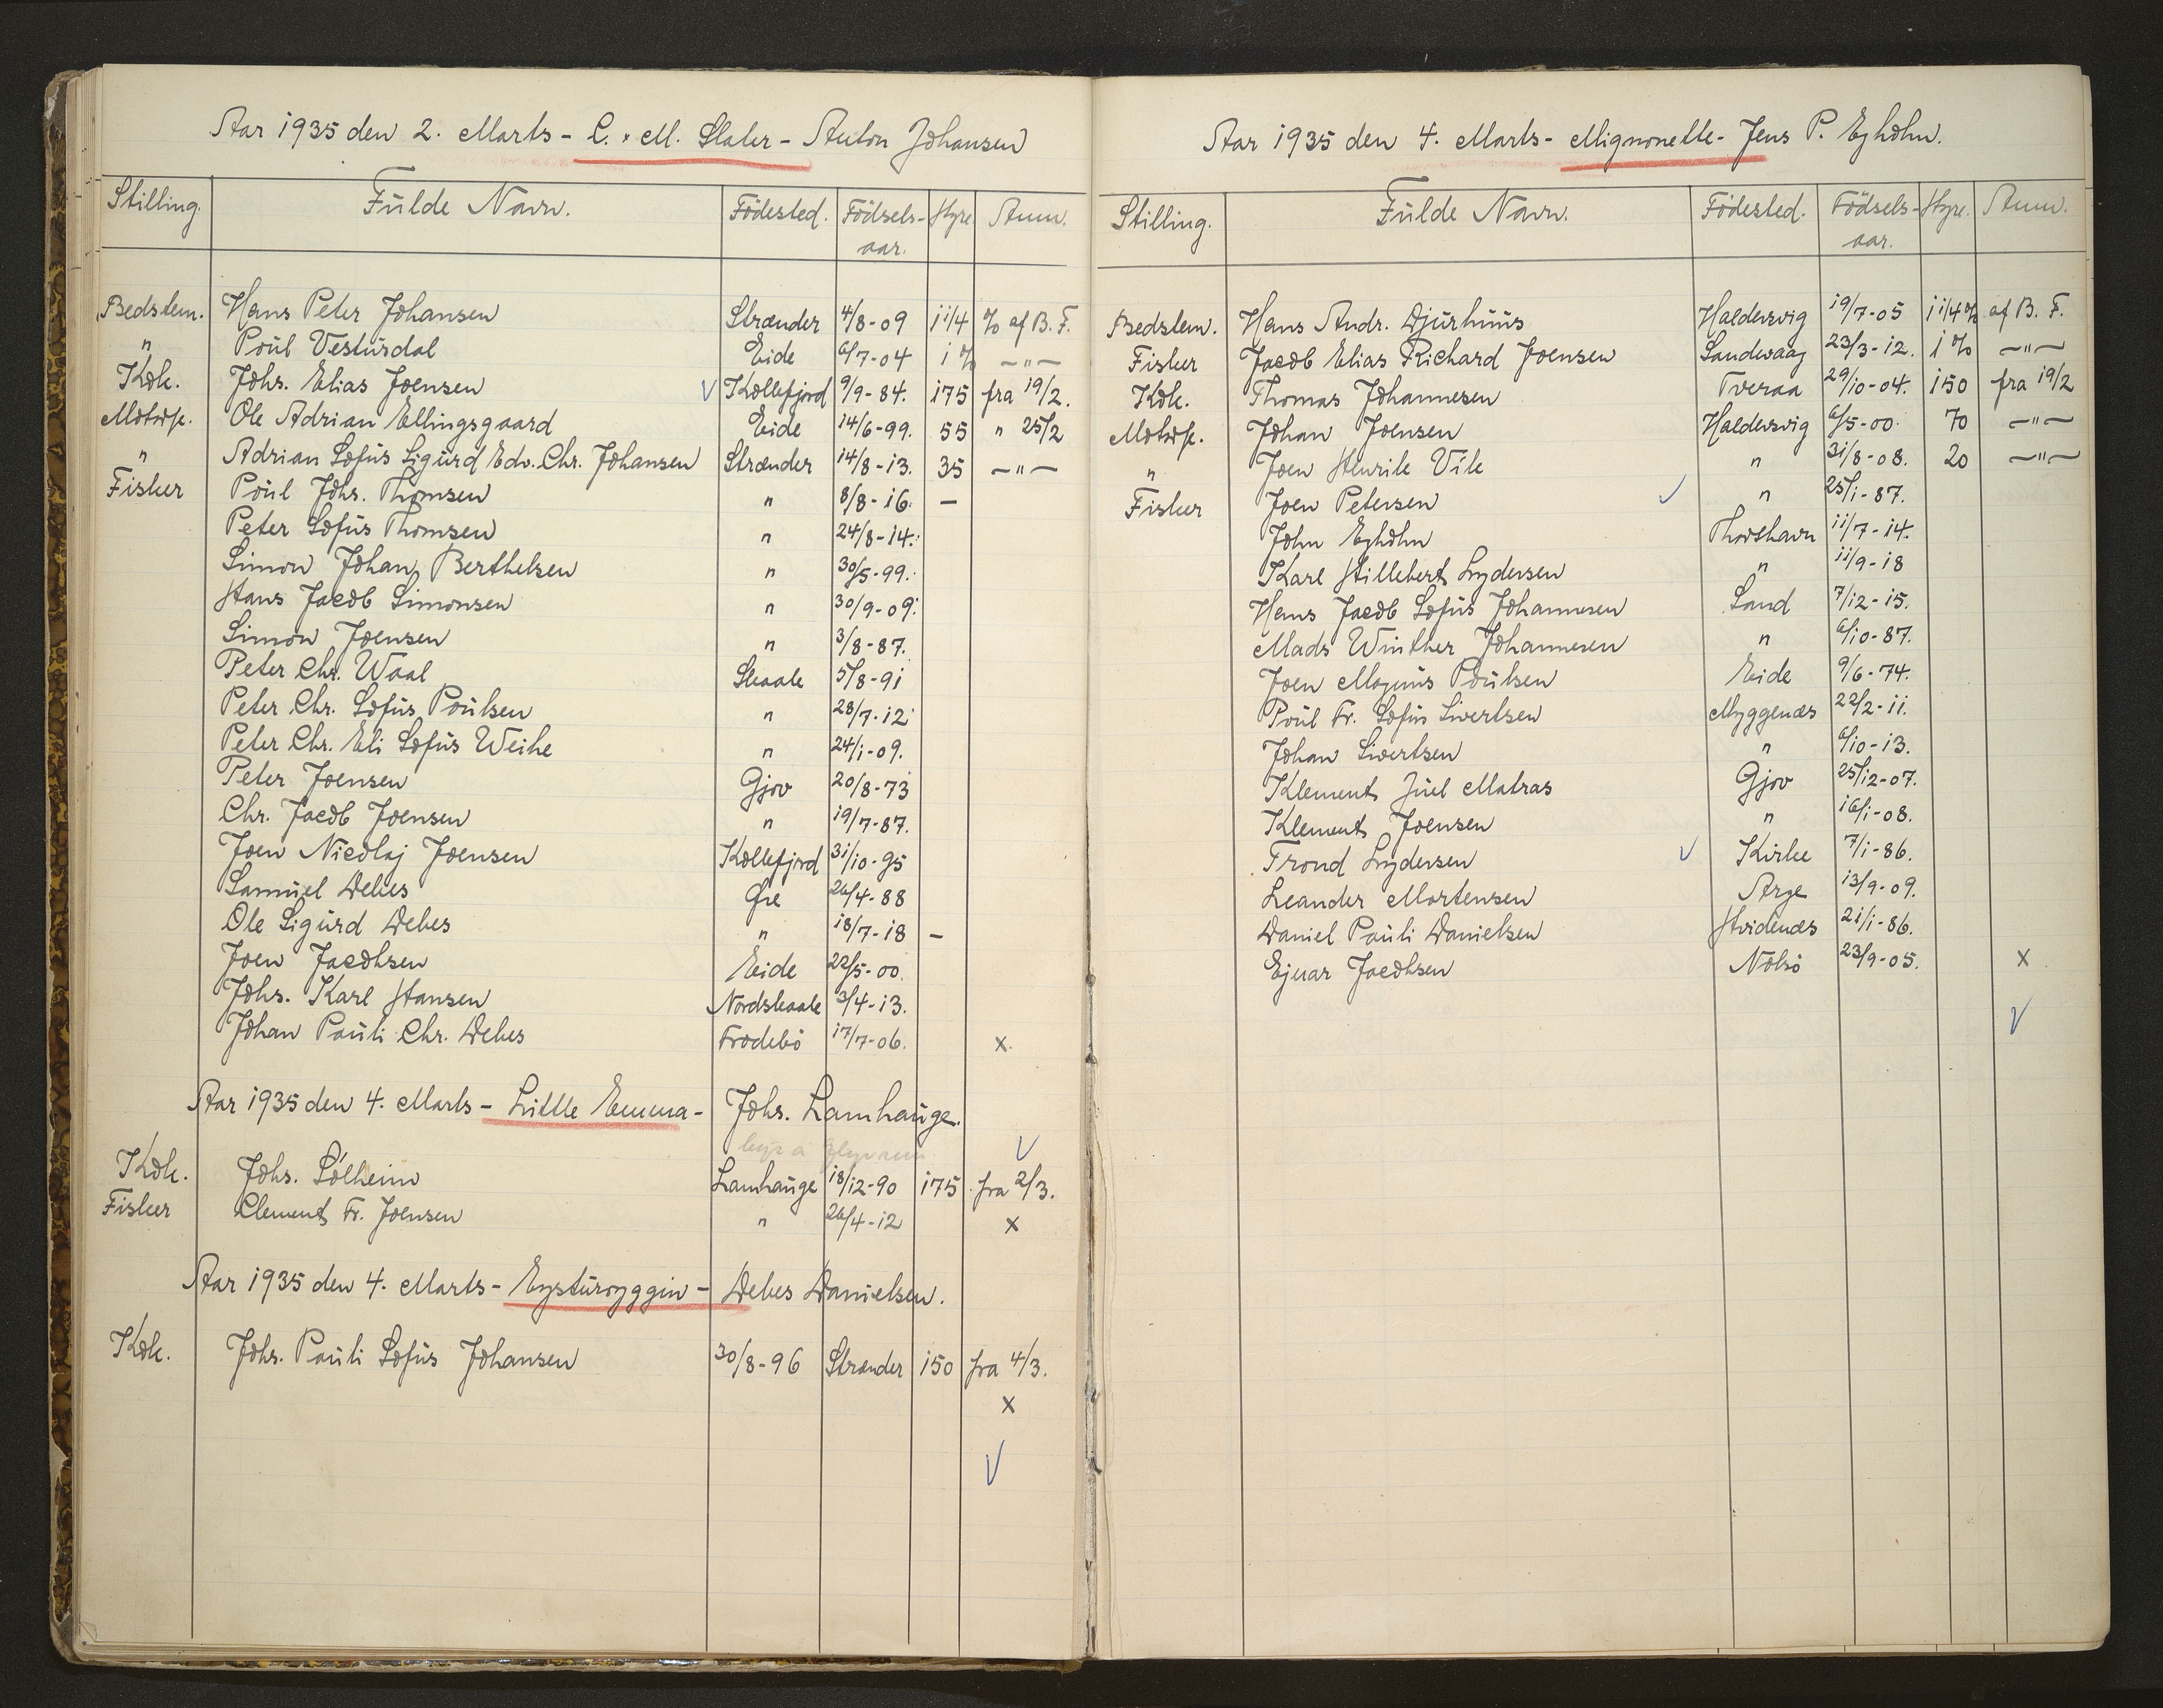 Aar 1935 den 2. Marts - C. & M. Slater - Anton Johansen
Stilling. Fulde Navn. Födested. Födsels-aar. Hyre Anm.
Bedstem. Hans Peter Johansen Strænder 4/8-09 1 1/4 % af B. F.
" Poul Vesturdal Eide 6/7-04 1 % -"-
Kok. Johs. Elias Joensen √ Kollefjord 9/9-84. 175 fra 19/2.
Motorp. Ole Adrian Ellingsgaard Eide 14/6-99. 55 " 25/2
" Adrian Sofus Sigurd Edv. Chr. Johansen Strænder 14/8-13. 35 -"-
Fisker Poul Johs. Thomsen " 8/8-16. -
Peter Sofus Thomsen " 24/8-14.
Simon Johan Berthelsen " 30/5-99.
Hans Jacob Simonsen " 30/9-09.
Simon Joensen " 3/8-87.
Peter Chr. Waal Skaale 5/8-91
Peter Chr. Sofus Poulsen " 28/7-12
Peter Chr. Eli Sofus Weihe " 24/1-09.
Peter Joensen Gjov 20/8-73
Chr. Jacob Joensen " 19/7-87.
Joen Nicolaj Joensen Kollefjord 31/10-95
Samuel Debes Øre 26/4-88
Ole Sigurd Debes " 18/7-18 -
Joen Jacobsen Eide 22/5-00.
Johs. Karl Hansen Nordskaale 3/4-13.
Johan Pauli Chr. Debes Frodebö 17/7-06. x
Aar 1935 den 4. Marts - Little Emma - Johs. Lamhauge.
√
Kok. Johs. Sólheim Lamhauge 18/12-90 175 fra 2/3.
Fisker Clement Fr. Joensen " 26/4-12 x
Aar 1935 den 4. Marts - Eysturoyggin - Debes Danielsen.
Kok. Johs. Pauli Sofus Johansen 30/8-96 Strænder 150 fra 4/3.
x
√
Aar 1935 den 4. Marts - Mignonette - Jens P. Egholm.
Stilling. Fulde Navn. Födested. Födsels-aar. Hyre. Anm.
Bedstem. Hans Andr. Djurhuus Haldersvig 19/7-05 1 1/4 % af B. F.
Fisker Jacob Elias Richard Joensen Sandvaag 23/3-12. 1 % -"-
Kok. Thomas Johannesen Tveraa 29/10-04. 150 fra 19/2
Motorp. Johan Joensen Haldersvig 6/5-00. 70 -"-
" Joen Henrik Vile " 31/8-08. 20 -"-
Fisker Joen Petersen √ " 25/1-87.
John Egholm Thorshavn 11/7-14.
Karl Hillebert Lydersen " 11/9-18
Hans Jacob Sofus Johannesen Sand 7/12-15.
Mads Winther Johannesen " 6/10-87.
Joen Magnus Poulsen Eide 9/6-74.
Poul Fr. Sofus Sivertsen Myggenæs 22/2-11.
Johan Sivertsen " 6/10-13.
Klement Juel Matras Gjov 25/12-07.
Klement Joensen " 16/1-08.
Trond Lydersen √ Kirke 7/1-86.
Leander Mortensen Arge 13/9-09.
Daniel Pauli Danielsen Hvidenæs 21/1-86.
Ejnar Jacobsen Nolsö 23/9-05. x
√